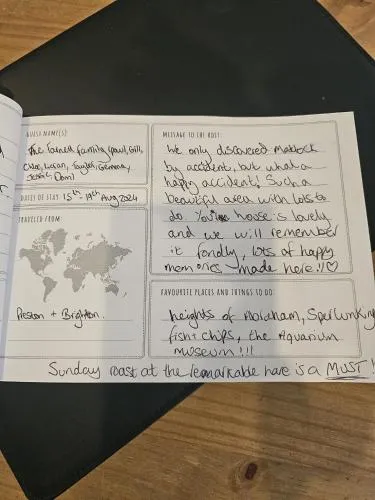 GUEST NAME(S)
The Farnell family (paul, Gill,
Chloe, Kieran, Taylah, Gemma,
Jessic, Dom)
DATES OF STAY 15th - 19th Aug 2024
TRAVELED FROM
Preston + Brighton.
MESSAGE TO THE HOST:
We only discovered Matlock
by accident, but what a
happy accident! Such a
beautiful area with lots to
do. Your house is lovely
and we will remember
it fondly, lots of happy
memories made here!!♡
FAVOURITE PLACES AND THINGS TO DO
heights of Abraham, Sperlunking
fish + chips, the Aquarium
museum!!!
Sunday roast at the remarkable hare is a MUST!